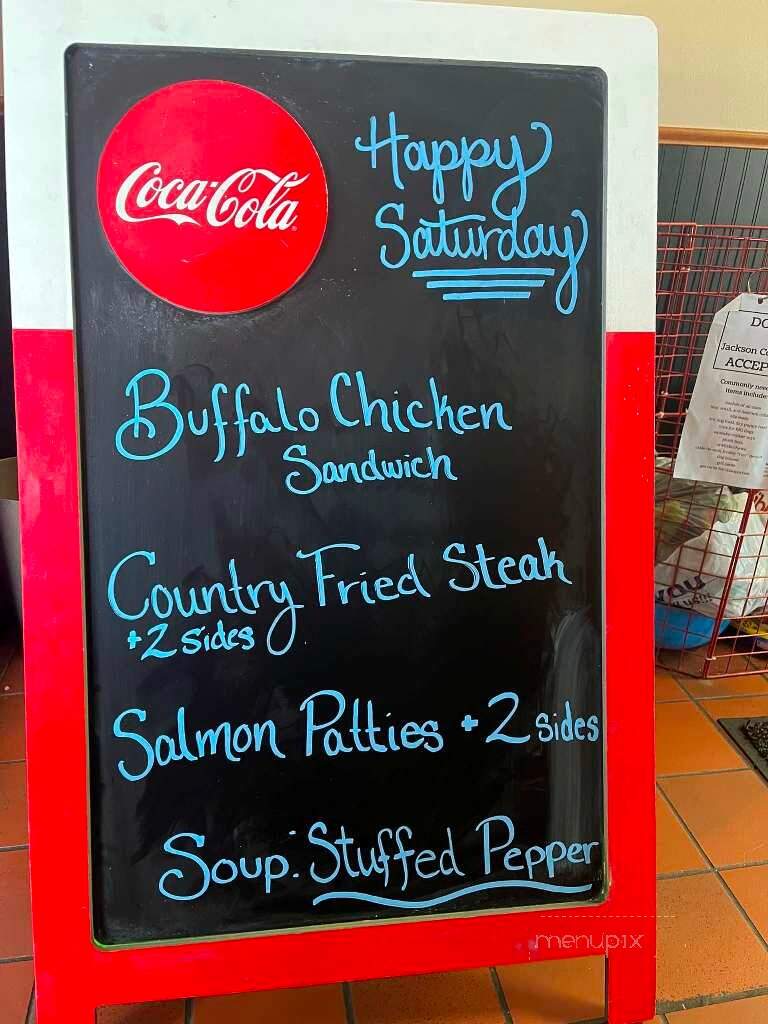 Coca-Cola
Happy
Saturday
Buffalo Chicken
Sandwich
Country Fried Steak
+ 2 sides
Salmon Patties + 2 sides
Soup: Stuffed Pepper
menupix
DO
Jackson Co
ACCEP
Commonly need
items include
YOU